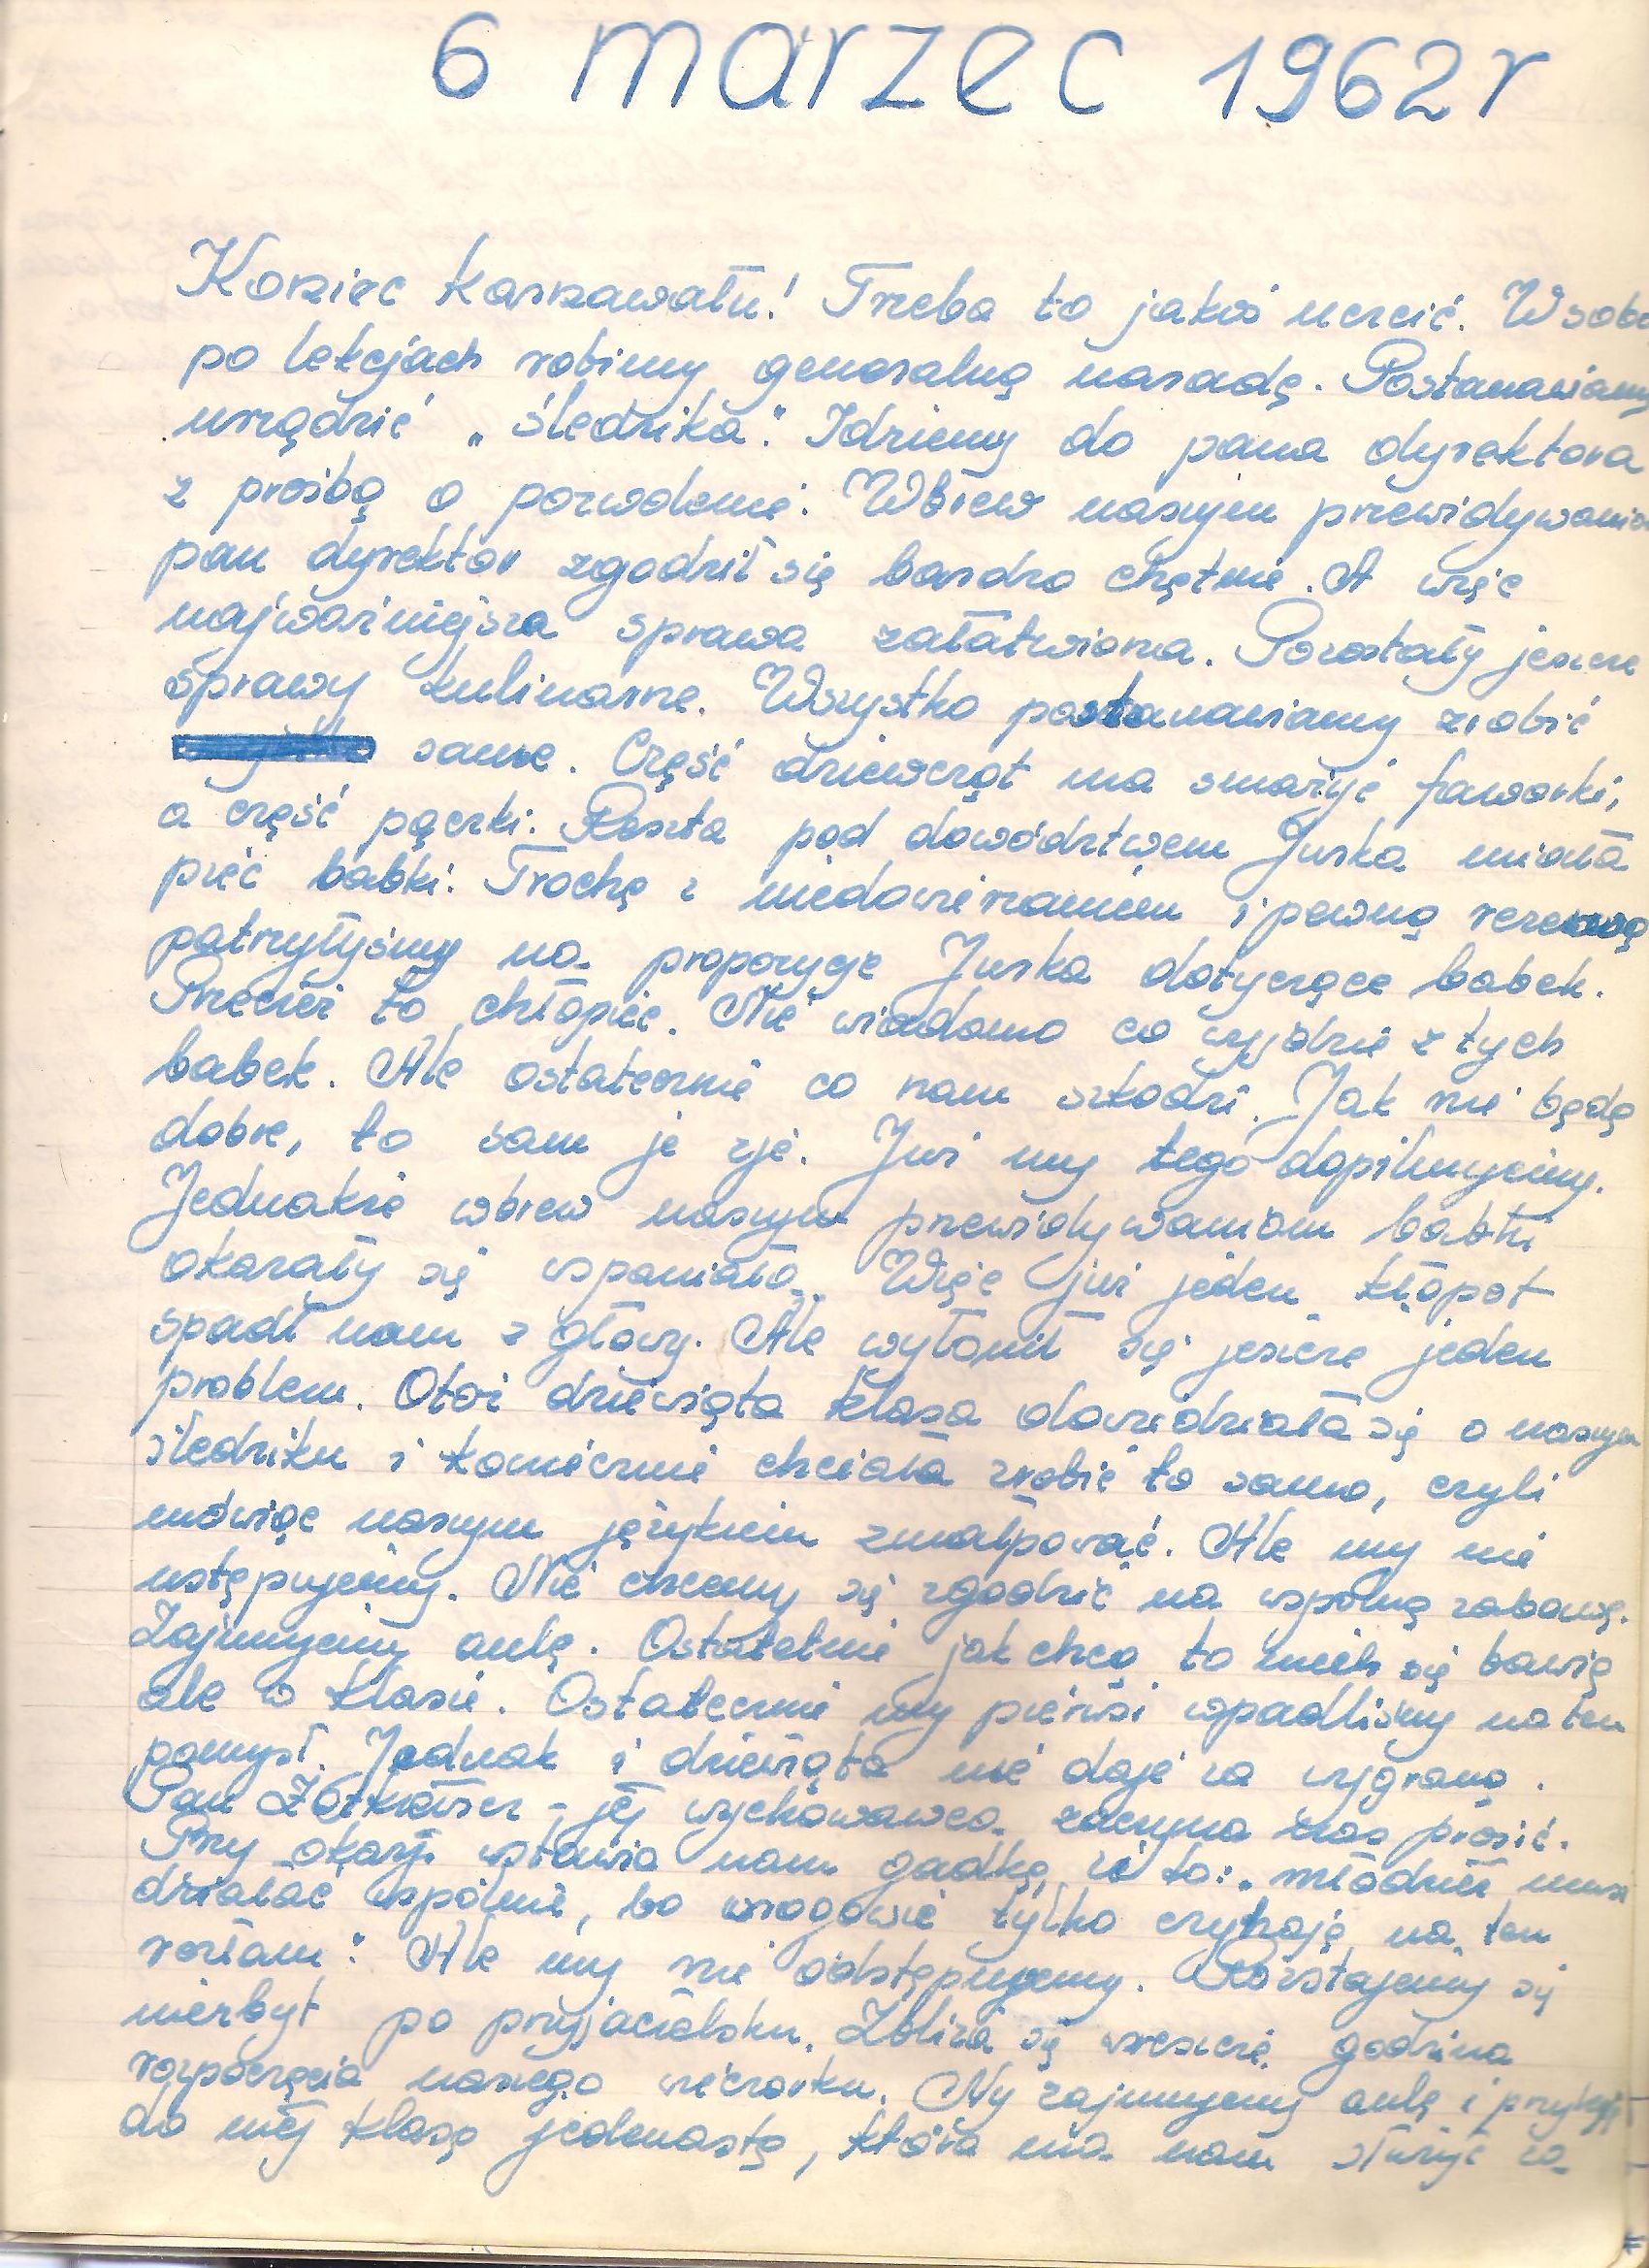 6 marzec 1962r
Koniec karnawału! Trzeba to jakoś uczcić. W sobo
po lekcjach robimy generalną naradę. Postanawiamy
urządzić „śledzika". Idziemy do pana dyrektora
z prośbą o pozwolenie. Wbrew naszym przewidywanio
pan dyrektor zgodził się bardzo chętnie. A więc
najważniejsza sprawa załatwiona. Pozostały jeszcze
sprawy kulinarne. Wszystko postanawiamy zrobić
same. Część dziewcząt ma smażyć faworki,
a część pączki. Reszta pod dowództwem Jurka miała
piec babki. Trochę z niedowierzaniem i pewną rezerwą
patrzyłyśmy na propozycje Jurka dotyczące babek.
Przecież to chłopiec. Nie wiadomo co wyjdzie z tych
babek. Ale ostatecznie co nam szkodzi. Jak nie będą
dobre, to sam je zje. Już my tego dopilnujemy.
Jednakże wbrew naszym przewidywaniom babki
okazały się wspaniałe. Więc już jeden kłopot
spadł nam z głowy. Ale wyłonił się jeszcze jeden
problem. Otóż dziewiąta klasa dowiedziała się o naszym
śledziku i koniecznie chciała zrobić to samo, czyli
mówiąc naszym językiem zmałpować. Ale my nie
ustępujemy. Nie chcemy się zgodzić na wspólną zabawę.
Zajmujemy aulę. Ostatetnie jak chcą to niech się bawią
ale w klasie. Ostatecznie my pierwsi wpadliśmy na ten
pomysł. Jednak i dziewiąta nie daje za wygraną.
Pan - jej wychowawca zaczyna nas prosić.
Przy okazji wstawia nam gadkę, że to: „młodzież musi
działać wspólnie, bo wrogowie tylko czyhają na ten
rozłam". Ale my nie odstępujemy. Rozstajemy się
niezbyt po przyjacielsku. Zbliża się wreszcie godzina
rozpoczęcia naszego wieczorku. My zajmujemy aulę i
do niej klasę jedenastą, która ma nam służyć za